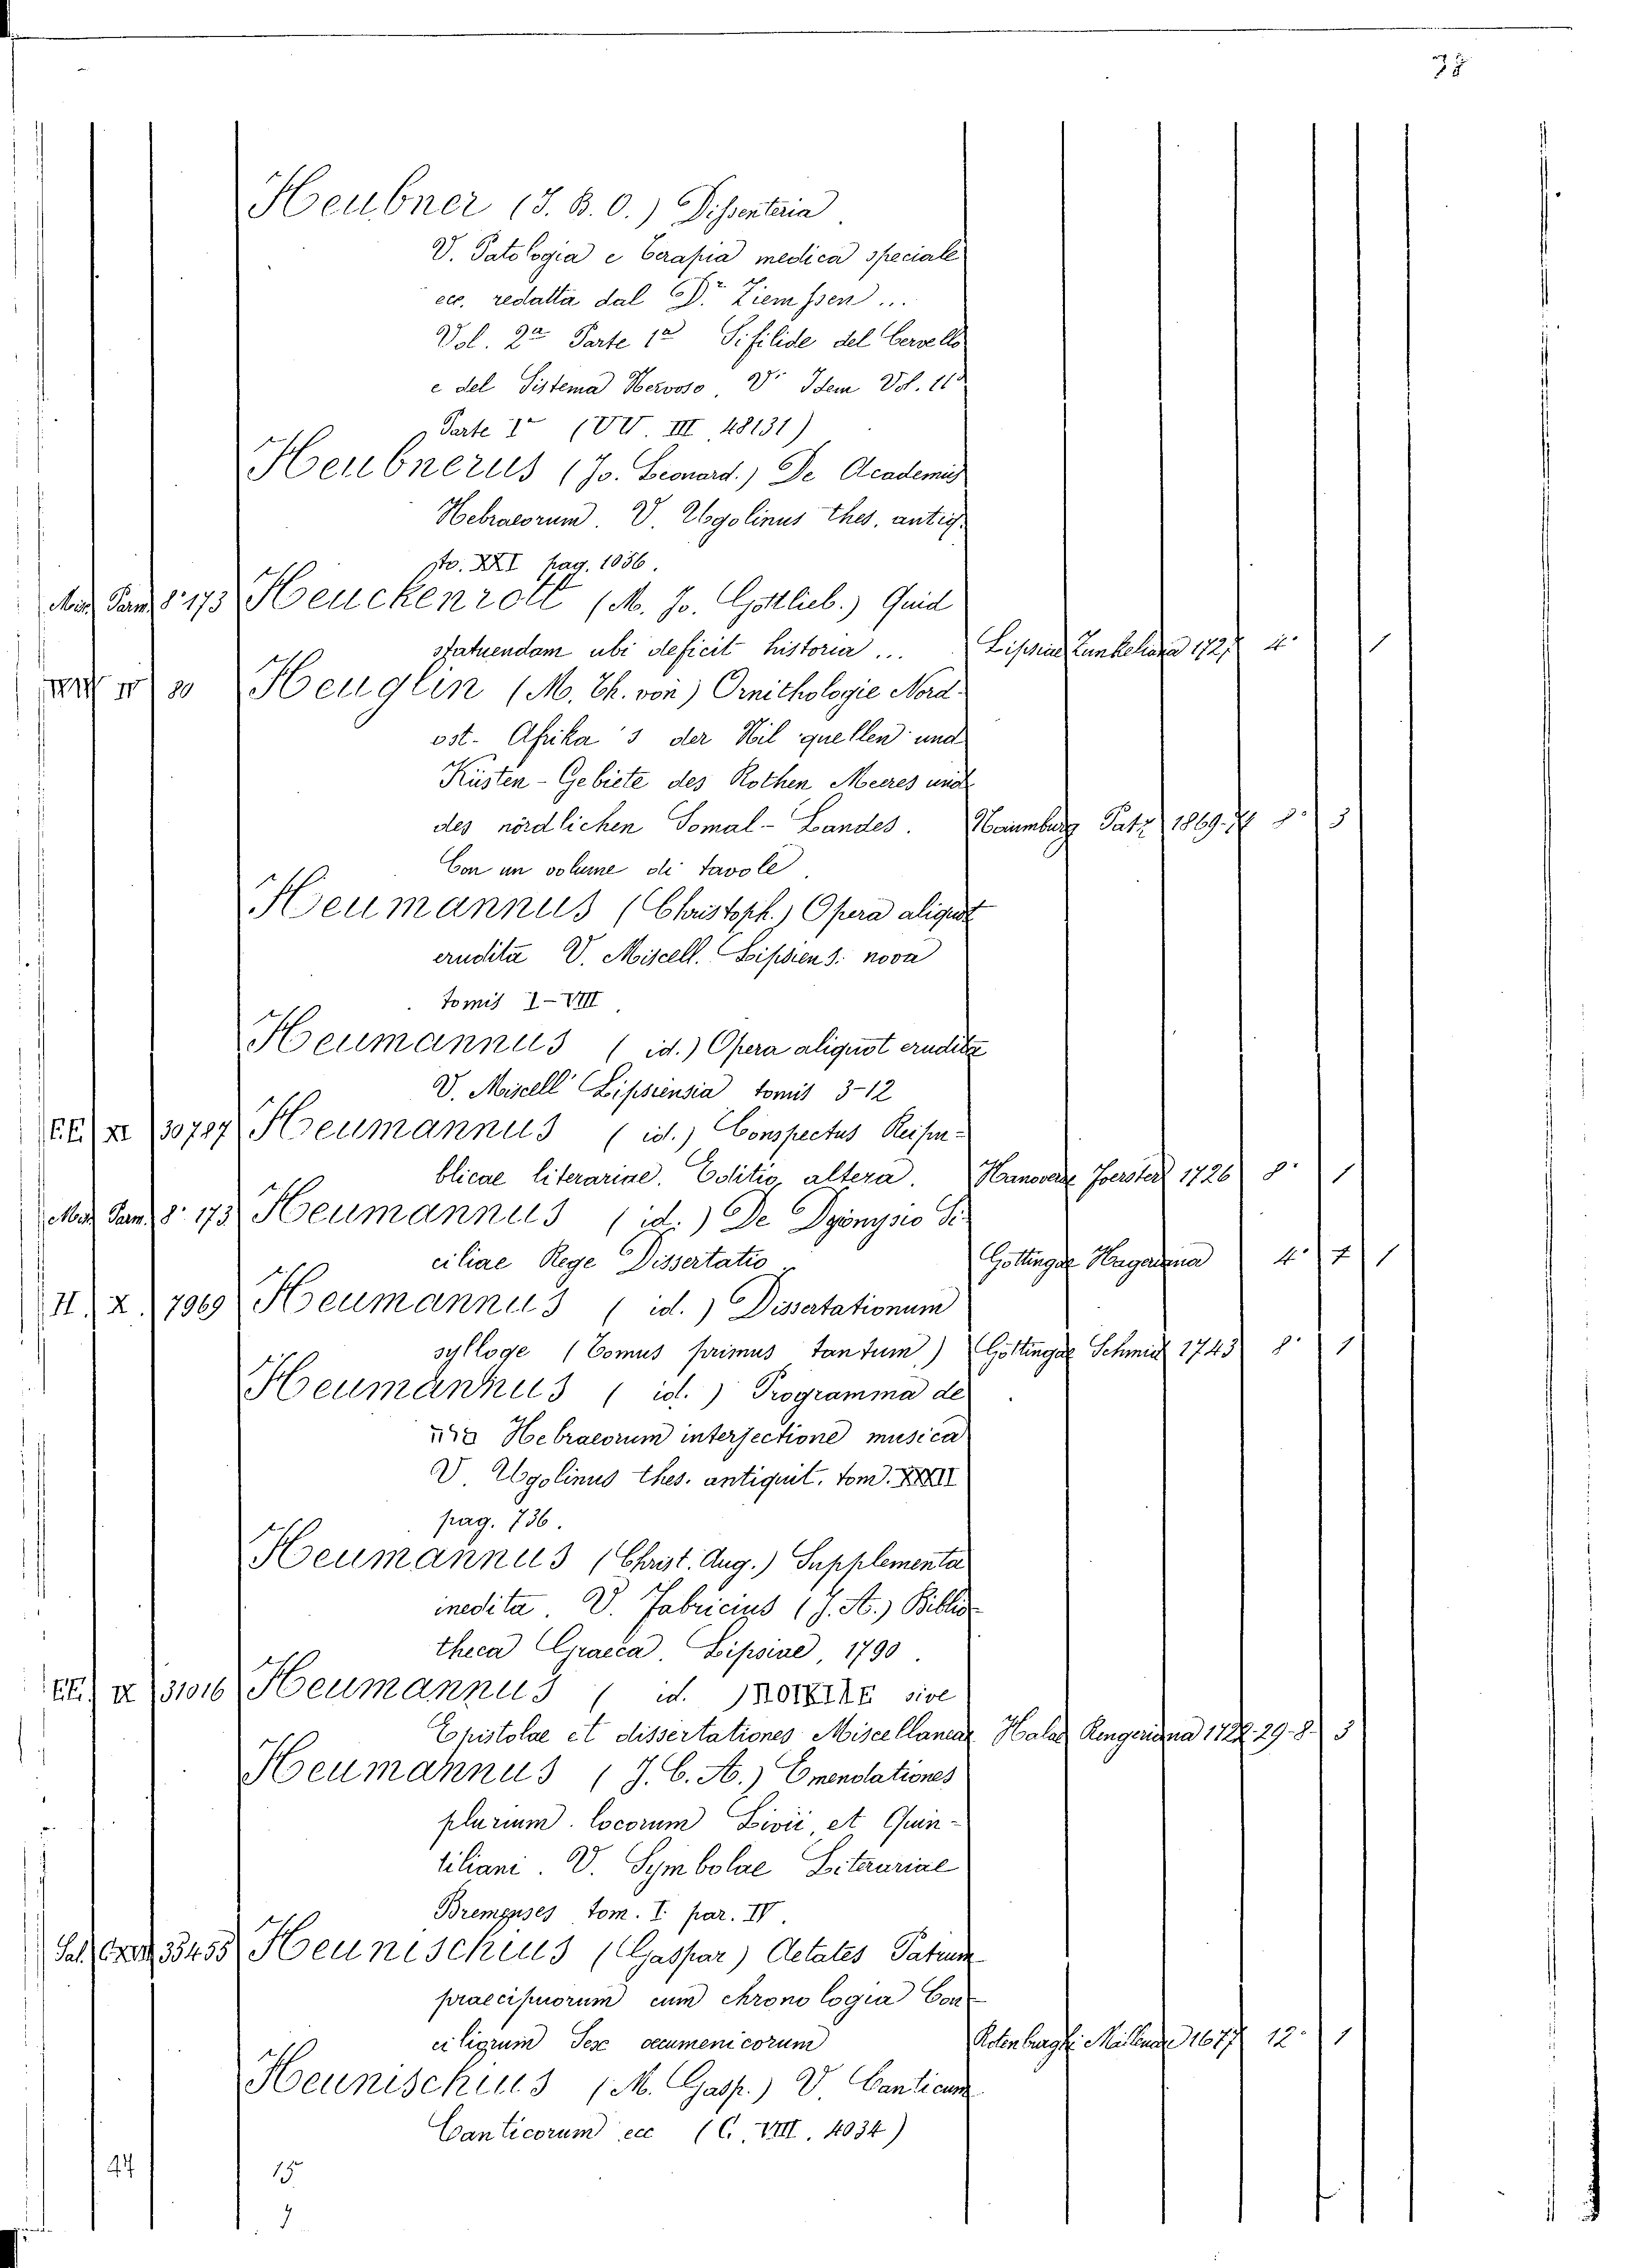 Heubner (J. B. O.) Dissenteria.
V. Patologia e Terapia medica speciale
ecc. redatta dal Dr. Ziemssen ...
Vol. 2a Parte 1a Sifilide del Cervello
e del Sistema Nervoso, V. Idem Vol. 11o
Parte 1a (VV. III 48131)
Heubnerus (Jo. Leonard.) De Academiis
Hebraeorum. V. Ugolinus thes. antiq.
to. XXI pag. 1036.
Mis. Pam. 8. 173 Heuckenrott (M. Jo. Gottlieb.) Quid
statuendam ubi deficit historia ... Lipsiae Zunkeliana 1727 4. 1
IV 80 Heuglin (M. Th. von) Ornithologie Nord-
ost- Afrika's der Nil quellen und
Küsten-Gebiete des Rothen Meeres und
des nördlichen Somal-Landes. Naumburg Patz 1869. 8. 3
Con un volume di tavole.
Heumannus (Christoph.) Opera aliquot
erudita V. Miscell. Lipsiens. nova
tomis I-VIII
Heumannus (id.) Opera aliquot erudita
V. Miscell. Lipsiensia tomis 3-12
EE. XI 30787 Heumannus (id.) Conspectus Reipu-
blicae literariae. Editio altera. Hanoverae Foerster 1726 8. 1
Mis. Pam. 8. 173 Heumannus (id.) De Dyonysio Si-
ciliae Rege Dissertatio Gottingae Hageriana 4. 7 1
II. X. 7969 Heumannus (id.) Dissertationum
sylloge (Tomus primus tantum) Göttingae Schmid 1743 8. 1
Heumannus (id.) Programma de
Hebraeorum interjectione musica
V. Ugolinus thes. antiquit. tom. XXXII
pag. 736.
Heumannus (Christ. Aug.) Supplementa
inedita. V. Fabricius (J. A.) Biblio-
theca Graeca. Lipsiae, 1790.
EE. IX 31016 Heumannus (id.) ΠΟΙΚΙΛΗ sive
Epistolae et dissertationes Miscellaneae Halae Rengeriana 1722-29. 8. 3
Heumannus (J. C. A.) Emendationes
plurium locorum Livii, et Quin-
tiliani. V. Symbolae Literariae
Bremenses tom. I. par. IV.
Sal. 33455 Heunischius (Gaspar) Aetates Patrum
praecipuorum cum chronologia Con-
ciliorum Sex oecumenicorum Rotenburgh. 1677 12. 1
Heunischius (M. Gasp.) V. Canticum
Canticorum ecc (C. VIII. 4034)
15